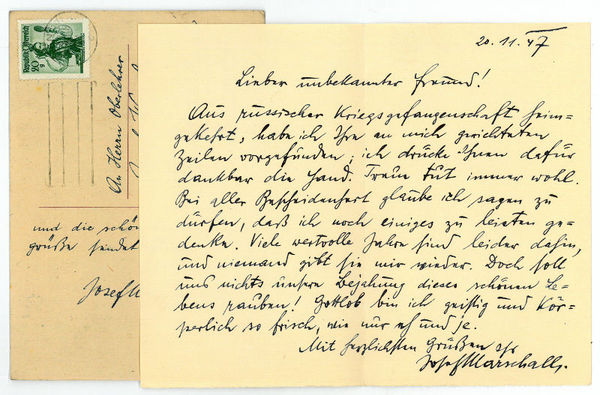 Republik Österreich
10 g
An Herrn Oberlehrer
und die schön
grüße sendet
Josef M
20.11.47
Lieber unbekannter Freund!
Aus russischer Kriegsgefangenschaft heim=
gekehrt, habe ich Ihre an mich gerichteten
Zeilen vorgefunden; ich drücke Ihnen dafür
dankbar die Hand. Treue tut immer wohl.
Bei aller Bescheidenheit glaube ich sagen zu
dürfen, daß ich noch einiges zu leisten ge=
denke. Viele wertvolle Jahre sind leider dahin,
und niemand gibt sie mir wieder. Doch soll
uns nichts unsere Bejahung dieses schönen Le=
bens rauben! Gottlob bin ich geistig und kör=
perlich so frisch, wie nur eh und je.
Mit herzlichsten Grüßen Ihr
Josef Marschall.